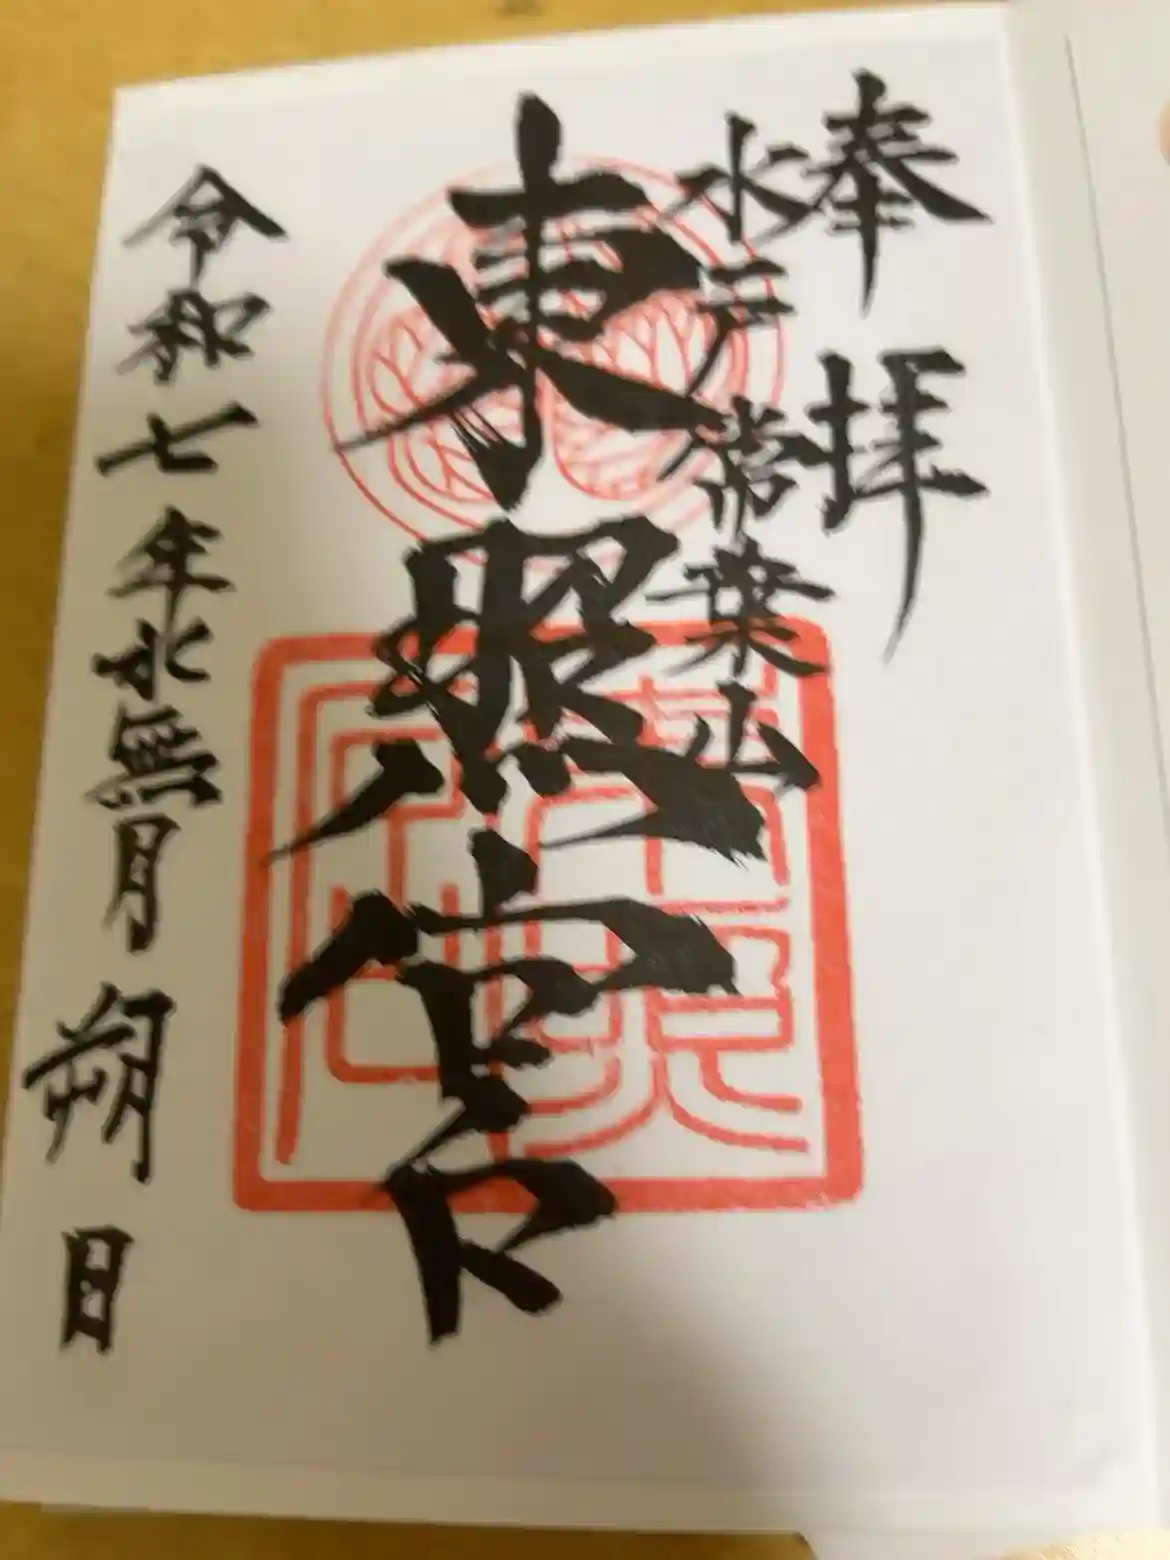 奉拝
水戸常葉山
東照宮
令和七年水無月朔日